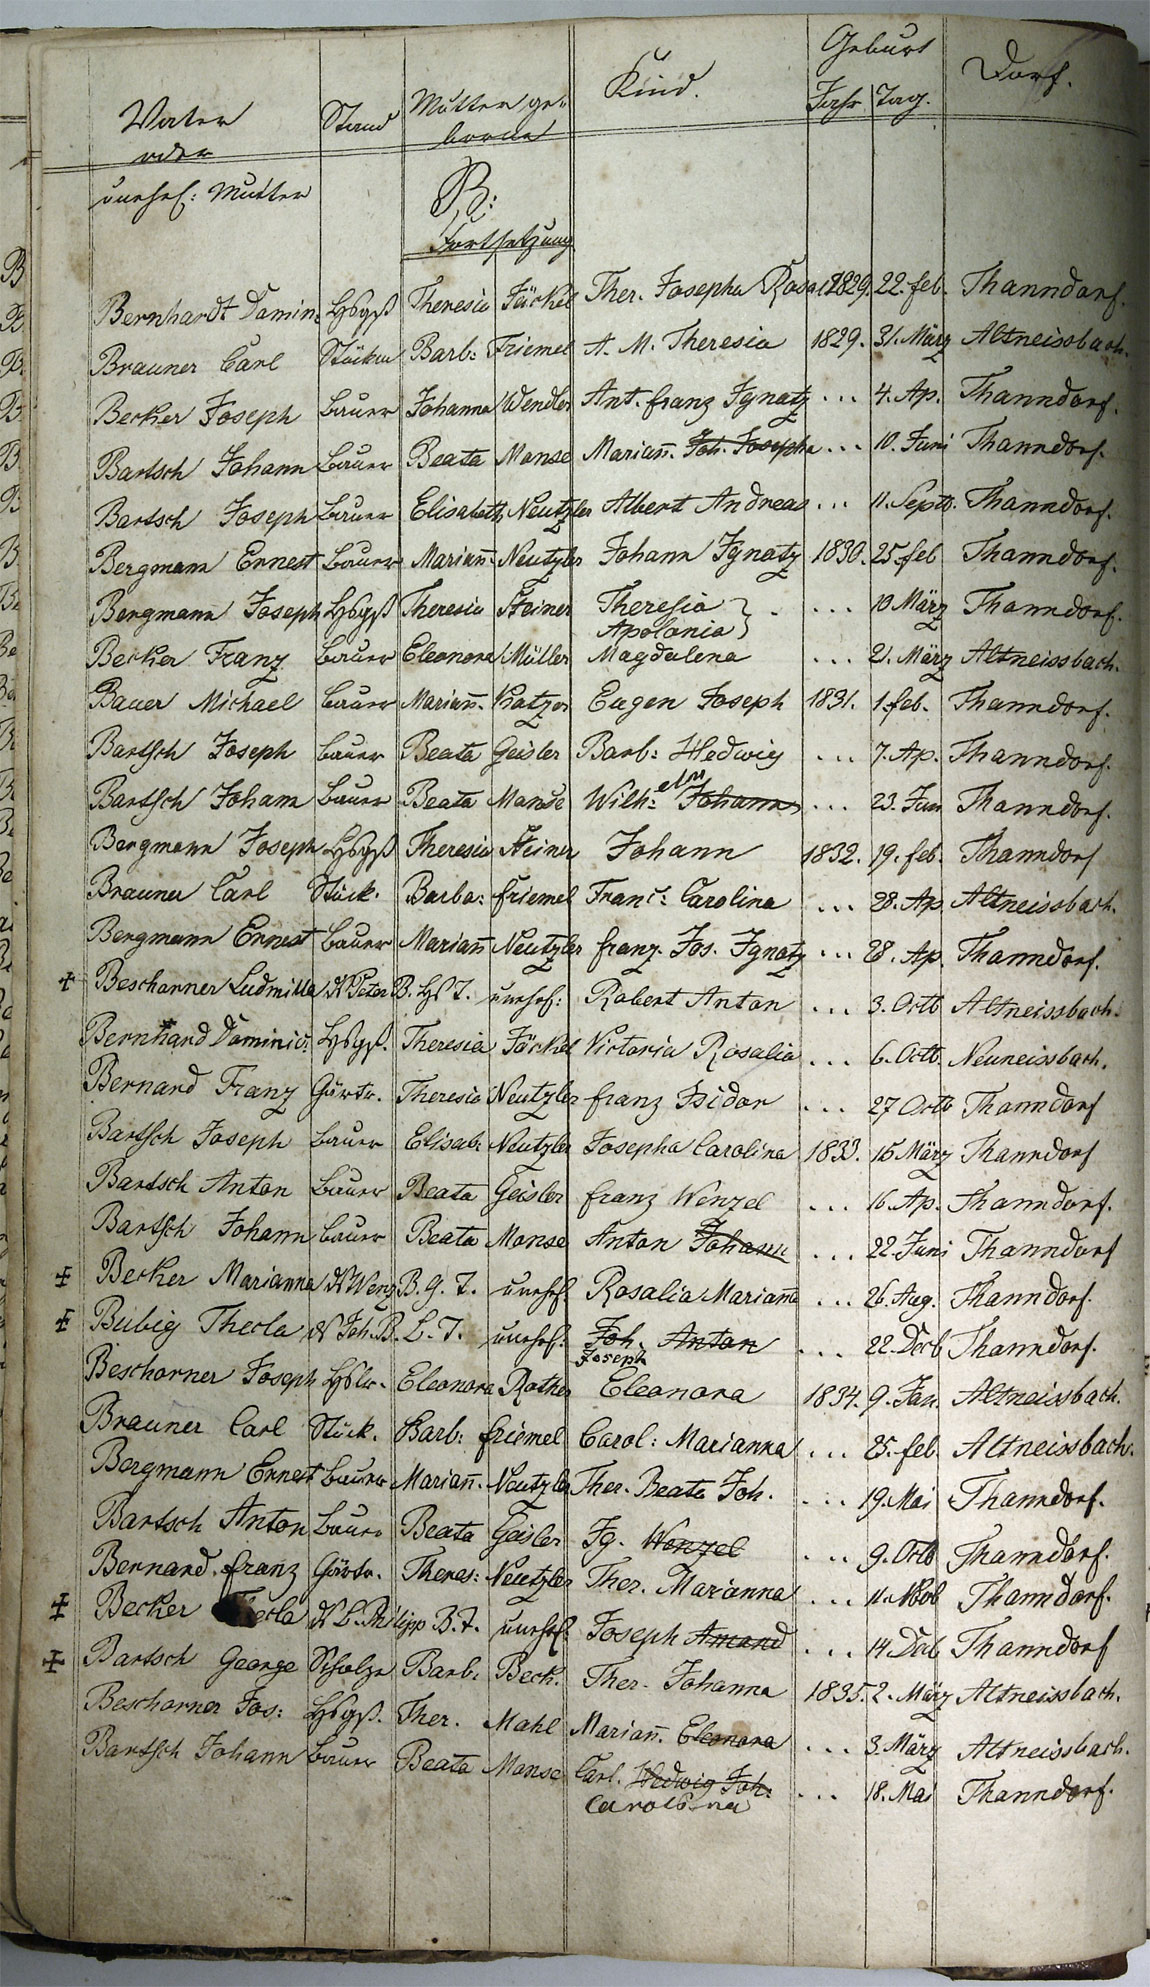 Geburt
Vater Stand Mutter ge- Kind. Jahr Tag. Dorf.
oder borene
unehel: Mutter B:
Fortsetzung
Bernhardt Domin. Hsgß Theresia Jäckel Ther. Josepha Rosa 1829. 22. feb. Thanndorf.
Brauner Carl Stückm Barb: Friemel A. M. Theresia 1829. 31. März Altneissbach.
Becker Joseph Bauer Johanna Wendler Ant. franz Ignatz ... 4. Ap. Thanndorf.
Bartsch Johann Bauer Beata Manse Mariañ. Joh. Josepha ... 10. Juni Thanndorf.
Bartsch Joseph Bauer Elisabeth Neutzler Albert Andreas ... 11. Septb. Thanndorf.
Bergmann Ernest Bauer Mariañ Neutzler Johann Ignatz 1830. 25. feb Thanndorf.
Bergmann Joseph Hsgß Theresia Steiner Theresia } ... 10 März Thanndorf.
Apolonia
Becker Franz Bauer Eleonora Müller Magdalena ... 21. März Altneissbach.
Bauer Michael Bauer Mariañ. Katzer Eugen Joseph 1831. 1. feb. Thanndorf.
Bartsch Joseph Bauer Beata Geisler Barb: Hedwig ... 7. Ap. Thanndorf.
Bartsch Johann Bauer Beata Manse Wilh: elm Johanna ... 23. Jun Thanndorf.
Bergmann Joseph Hsgß Theresia Steiner Johann 1832. 19. feb. Thanndorf
Brauner Carl Stück. Barba: friemel Franc: Carolina ... 28. Ap Altneissbach.
Bergmann Ernest Bauer Mariañ Neutzler franz. Jos. Ignatz ... 28. Ap. Thanndorf.
Beschorner Ludmilla d Peter B. Hs T. unehel: Robert Anton ... 3. Octb Altneissbach.
Bernhard Dominic: Hsgß. Theresia Jäckel Victoria Rosalia ... 6. Octb. Neuneissbach.
Bernard Franz Gärtr. Theresia Neutzler franz Isidor ... 27 Octb Thanndorf
Bartsch Joseph Bauer Elisab: Neutzler Josepha Carolina 1833. 15 März Thanndorf
Bartsch Anton Bauer Beata Geisler franz Wenzel ... 16. Ap. Thanndorf.
Bartsch Johann Bauer Beata Manse Anton Johann ... 22. Juni Thanndorf
Becker Marianna d Wenz B. G. T. unehel. Rosalia Mariaña ... 26. Aug. Thanndorf.
Bubig Thecla d Joh. B. L. T. unehel: Joh. Anton ... 22. Decb Thanndorf.
Joseph
Beschorner Joseph Hslr. Eleonora Rother Eleonora 1834. 9. Jan. Altneissbach.
Brauner Carl Stück. Barb: friemel Carol: Marianna ... 25. feb. Altneissbach.
Bergmann Ernest Bauer Mariañ. Neutzler Ther. Beata Joh. ... 19. Mai Thanndorf.
Bartsch Anton Bauer Beata Geisler Ig. Wenzel ... 9. Octb Thanndorf.
Bernard. franz Gärtr. Theres: Neutzler Ther. Marianna ... 11. Nvb Thanndorf.
Becker Thecla d L. Philipp B. T. unehel. Joseph Amand ... 14. Decb Thanndorf
Bartsch George Scholze Barb: Beck. Ther. Johanna 1835. 2. März Altneissbach.
Beschorner Jos: Hsgß. Ther. Mahl Mariañ. Eleonora ... 3. März Altneissbach.
Bartsch Johann Bauer Beata Manse Carl. Hedwig Joh: ... 18. Mai Thanndorf.
Carolina